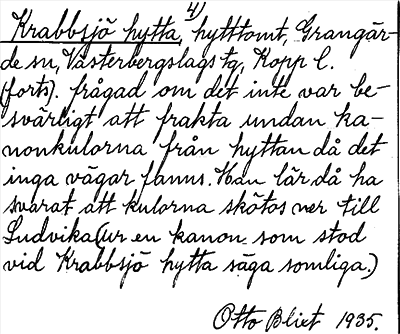 4)
Krabbsjö hytta, hytttomt, Grangär-
de sn, Västerbergslags tg, Kopp l.
(forts). frågad om det inte var be-
svärligt att frakta undan ka-
nonkulorna från hyttan då det
inga vägar fanns. Han lär då ha
svarat att kulorna skötos ner till
Ludvika (ur en kanon som stod
vid Krabbsjö hytta säga somliga.)
Otto Blixt 1935.